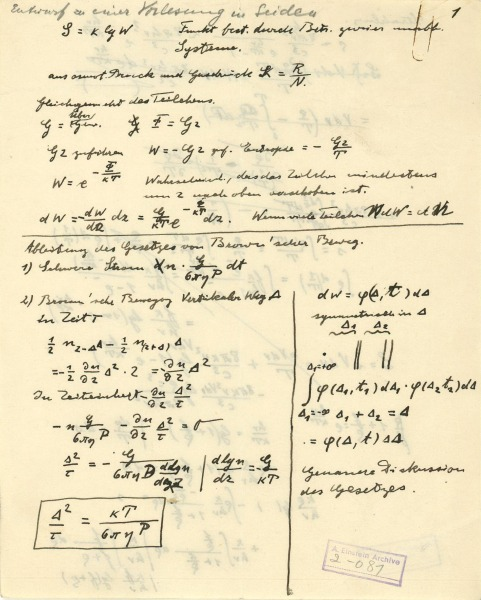 Entwurf zu einer Vorlesung in Leiden
1
S = κ lg W Funkt. best. durch Betr. zweier unabh.
Systeme.
aus osmot Druck und Gasdruck κ = R/N.
Gleichgewicht des Teilchens.
G = Über Gew. Φ = Gz
Gz zuführen W = -Gz zug. Entropie = - Gz/T
W = e^{-Φ/κT} Wahrscheinl., dass das Teilchen mindestens
um z nach oben verschoben ist.
dW = -dW/dz dz = G/κT e^{-Φ/κT} dz. Wenn viele Teilchen NdW = dN
Ableitung des Gesetzes von Brown'scher Beweg.
1) Schwere Strom n · G/6πηP dt
2) Brown'sche Bewegung Vertikaler Weg Δ
In Zeit τ
1/2 n_{z-Δ} Δ - 1/2 n_{z+Δ} Δ
= -1/2 ∂n/∂z Δ² · 2 = -∂n/∂z Δ²
In Zeiteinheit - ∂n/∂z Δ²/τ
- n G/6πηP - ∂n/∂z Δ²/τ = 0
Δ²/τ = - G/6πηP | dlgn/dz = -G/κT
Δ²/τ = κT/6πηP
dW = φ(Δ, t) dΔ
symmetrisch in Δ
Δ₁ Δ₂
Δ₁=+∞
∫ φ(Δ₁,t₁) dΔ₁ · φ(Δ₂t₂) dΔ
Δ₁=-∞ Δ₁ + Δ₂ = Δ
= φ(Δ, t) dΔ
Genauere Diskussion
des Gesetzes.
A. Einstein Archive
2-087